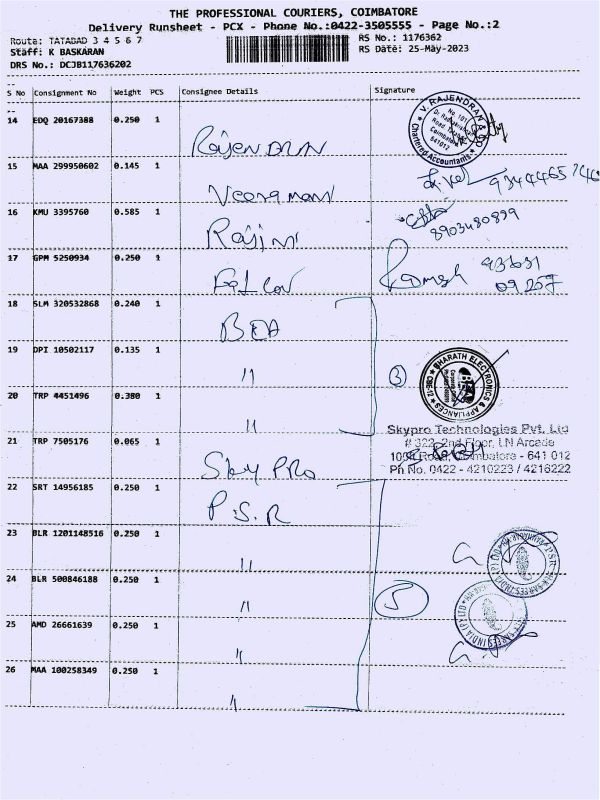 THE PROFESSIONAL COURIERS, COIMBATORE
Delivery Runsheet - PCX - Phone No.:0422-3505555 - Page No.:2
Route: TATABAD 3 4 5 6 7
RS No.: 1176362
Staff: K BASKARAN
RS Date: 25-May-2023
DRS No.: DCJB117636202
S No Consignment No Weight PCS Consignee Details Signature
14 EDQ 20167388 0.250 1
Rajendran
V. RAJENDRAN & CO
Chartered Accountants
No. 101
Coimbatore
641012
15 MAA 299950602 0.145 1
Veeramani
16 KMU 3395760 0.585 1
Rajini
8903480899
17 GPM 5250934 0.250 1
Ramesh 93631
09207
18 SLM 320532868 0.240 1
BEA
19 DPI 10502117 0.135 1
"
3
BHARATH ELECTRONICS & APPLIANCES
CBE-12
20 TRP 4451496 0.380 1
"
21 TRP 7505176 0.065 1
Sky Pro
Skypro Technologies Pvt. Ltd
# 322, 2nd Floor, I.N Arcade
100ft Road, Coimbatore - 641 012
Ph No. 0422 - 4210223 / 4216222
22 SRT 14956185 0.250 1
P.S.R
23 BLR 1201148516 0.250 1
"
24 BLR 500846188 0.250 1
"
5
25 AMD 26661639 0.250 1
"
26 MAA 100258349 0.250 1
"